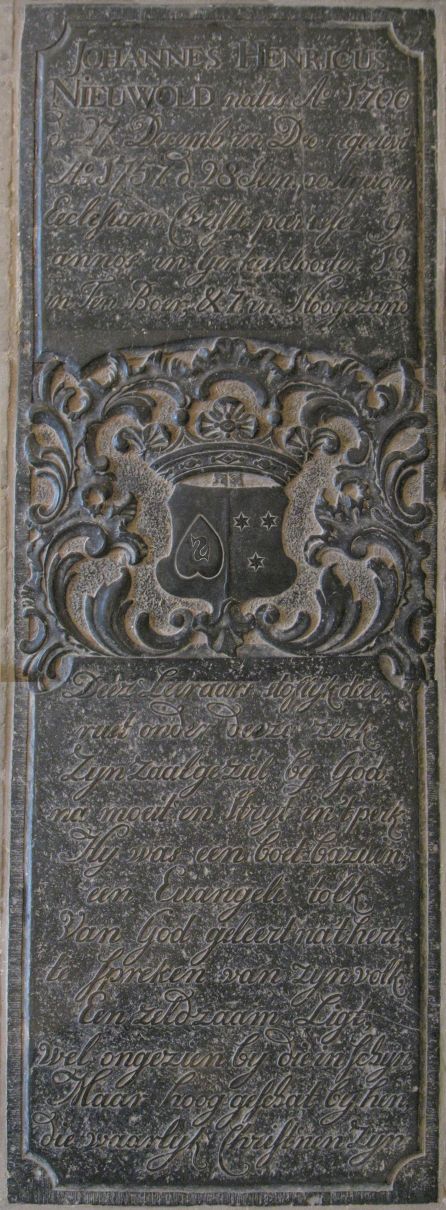 JOHANNES HENRICUS
NIEUWOLD natus Aº. 1700
d. 27 Decemb. in Deo requievit
Aº. 1757. d. 28 Jun. postquam
Ecclesiam Christi pavisset 9.
annos in Gerkesklooster 12
in Ten Boer & 7 in Hoogezand
Deez Leeraars stoflyk deel
rust onder deeze zerk
Zyn zaalge ziel by God
na moeit en stryt in 't perk
Hy was een boet bazuin
een Euangeli tolk
Van God geleert na t hert
te spreken van zyn volk
Een zeldzaam Ligt
wel ongezien by die in schyn
Maar hoog geschat by hen
die waarlyk Christnen zyn